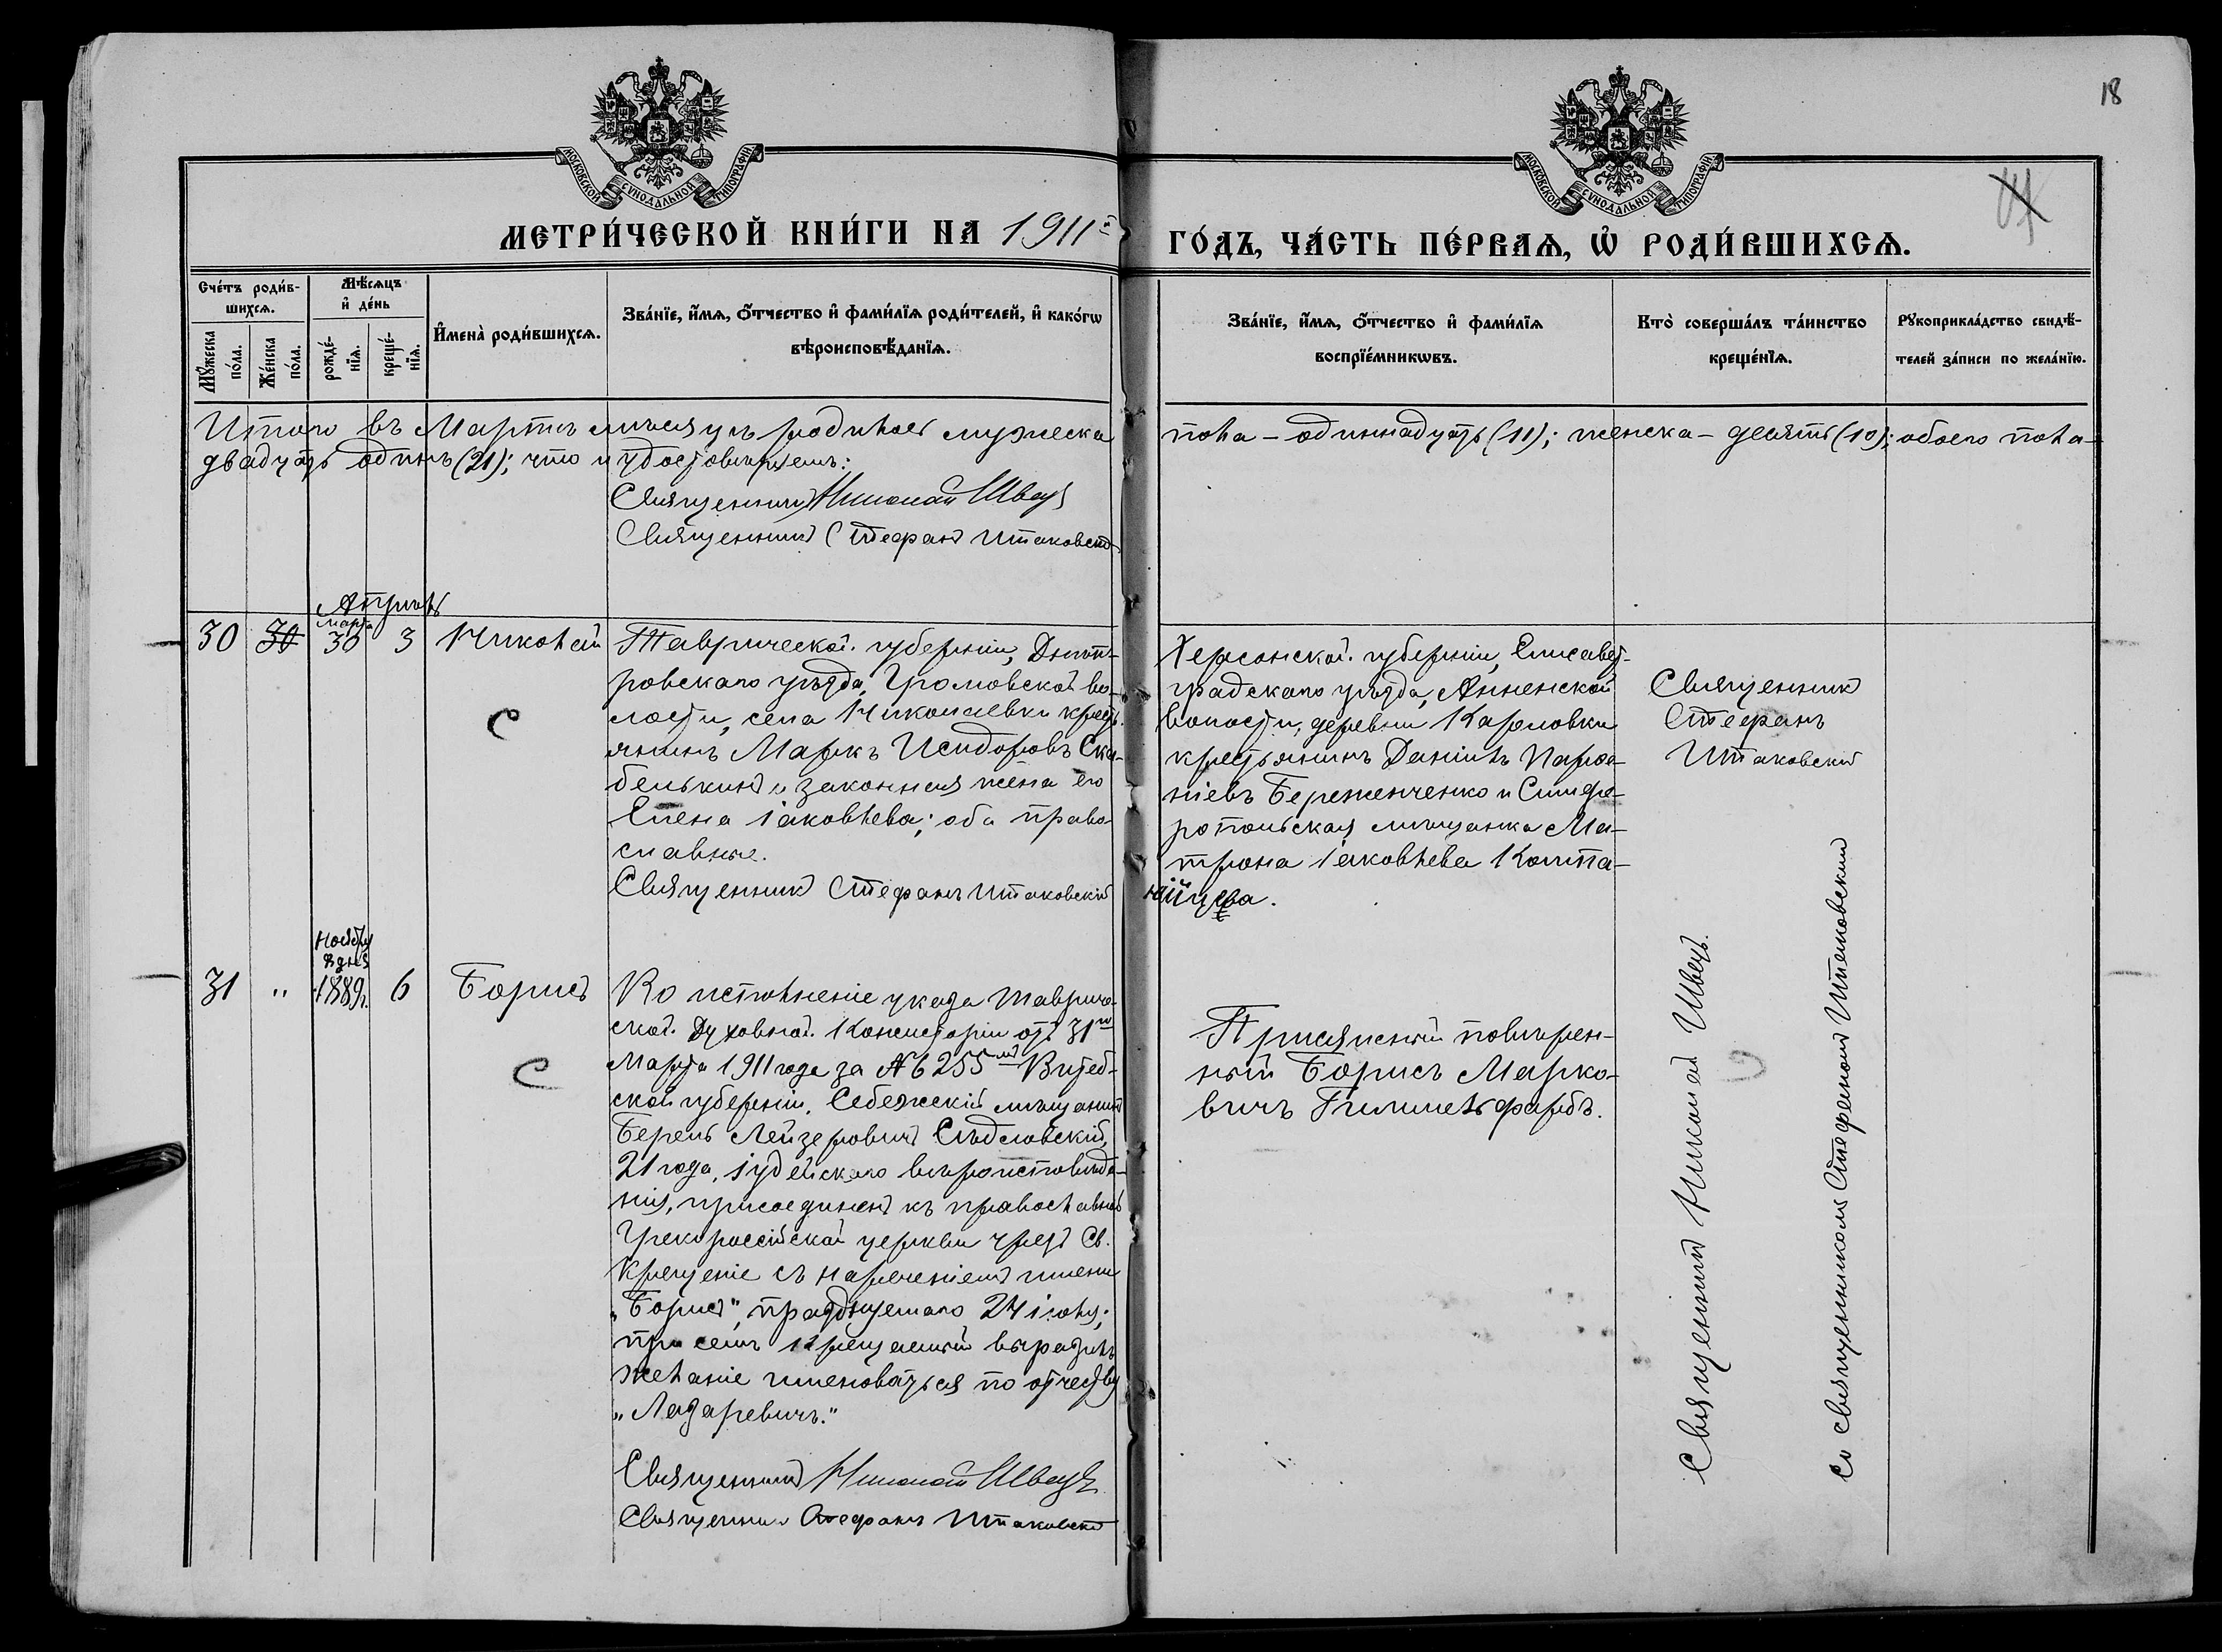 18
МОСКОВСКОЙ СУНОДАЛЬНОЙ ТИПОГРАФІИ
МОСКОВСКОЙ СУНОДАЛЬНОЙ ТИПОГРАФІИ
МЕТРИ́ЧЕСКОЙ КНИ́ГИ НА 1911й ГО́ДЪ, ЧА́СТЬ ПЕ́РВАѦ, Ѡ҆ РОДИ́ВШИХСѦ.
Сче́тъ роди́в-
шихсѧ.
Мꙋ́жеска
по́ла.
Же́нска
по́ла.
Мѣ́сѧцъ
и҆ де́нь
рожде́-
нїѧ.
креще́-
нїѧ.
И҆мена̀ роди́вшихсѧ.
Зва́нїе, и҆́мѧ, ѻ҆́тчество и҆ фами́лїѧ роди́телей, и҆ како́гѡ
вѣроисповѣ́данїѧ.
Зва́нїе, и҆́мѧ, ѻ҆́тчество и҆ фами́лїѧ
воспрїе́мникѡвъ.
Кто̀ соверша́лъ та́инство
креще́нїѧ.
Рꙋкоприкла́дство свидѣ́-
телей за́писи по жела́нїю.
Итого въ Мартѣ мѣсяцѣ родилось мужеска пола – одиннадцать (11); женска – десять (10); обоего пола –
двадцать одинъ (21); что и удостовѣряемъ:
Священникъ Николай Швецъ
Священникъ Стефанъ Штаковскій
Апрѣль
30
30
Марта
30
3
Николай
Таврической губерніи, Днѣп-
ровскаго уѣзда, Громовской во-
лости, села Николаевки кресть-
янинъ Маркъ Исидоровъ Ска-
белькинъ и законная жена его
Елена Іаковлева; оба право-
славные.
Священникъ Стефанъ Штаковскій
Херсонской губерніи, Елисавет-
градскаго уѣзда, Анненской
волости, деревни Карловки
крестьянинъ Даніилъ
Береженченко и Симфе-
ропольская мѣщанка Ма-
трона Іаковлева Компа-
нійцева.
Священникъ
Стефанъ
Штаковскій
31
"
Ноября
8 дня
1889г.
6
Борисъ
С
С
Во исполненіе указа Тавриче-
ской Духовной Консисторіи отъ 31го
Марта 1911 года за № 6255мъ Витеб-
ской губерніи, Себежскій мѣщанинъ
Берель Лейзеровичъ Сѣдловскій,
21 года, іудейскаго вѣроисповѣда-
нія, присоединенъ къ православной
Грекороссійской церкви чрезъ Св.
Крещеніе съ нареченіемъ имени
„Борисъ", празднуемаго 24 іюля;
при семъ крещаемый выразилъ
желаніе именоваться по отчеству
„Лазаревичъ."
Священникъ Николай Швецъ
Священникъ Стефанъ Штаковскій
Присяжный повѣрен-
ный Борисъ Марко-
вичъ Гиммельфарбъ.
Священникъ Николай Швецъ.
Со священникомъ Стефаномъ Штаковскимъ